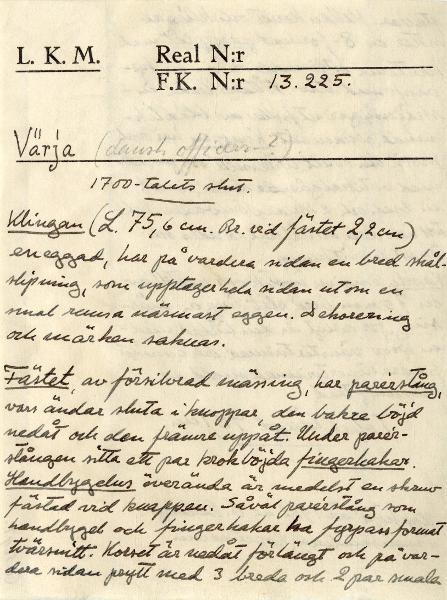 L. K. M. Real N:r
F.K. N:r 13.225.
Värja (dansk officers-?)
1700-talets slut.
Klingan (L. 75,6 cm. Br. vid fästet 2,2 cm)
eneggad, har på vardera sidan en bred skål-
slipning, som upptager hela sidan utom en
smal remsa närmast eggen. Dekorering
och märken saknas.
Fästet, av försilvrad mässing, har parerstång,
vars ändar sluta i knoppar, den bakre böjd
nedåt och den främre uppåt. Under parer-
stången sitta ett par krokböjda fingerhakar.
Handbygelns överända är medelst en skruv
fästad vid knappen. Såväl parerstång som
handbygel och fingerhakar ha fyrpassformat
tvärsnitt. Korset är nedåt förlängt och på var-
dera sidan prytt med 3 breda och 2 par smala